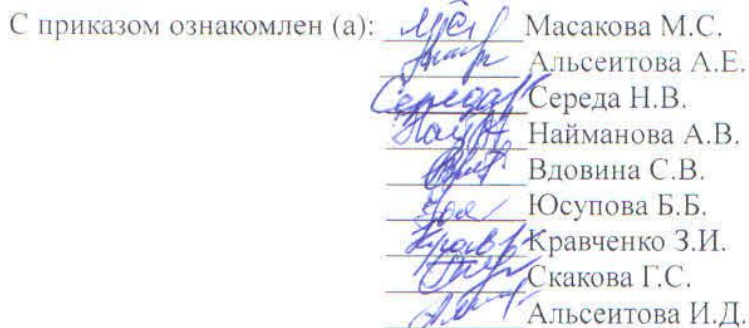 С приказом ознакомлен (а): Масакова М.С.
Альсеитова А.Е.
Середа Н.В.
Найманова А.В.
Вдовина С.В.
Юсупова Б.Б.
Кравченко З.И.
Скакова Г.С.
Альсеитова И.Д.